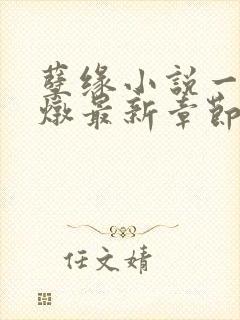 孽缘小说一
燉最新章節
任文婧